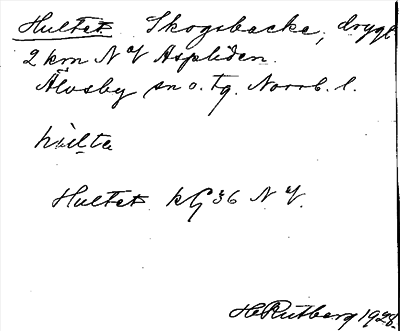 Hultet. Skogsbacke, drygt
2 km N V Aspliden.
Älvsby sn o. tg. Norrb. l.
hu̇l̥ta
Hultet kG 36 N V.
H Rutberg 1928.